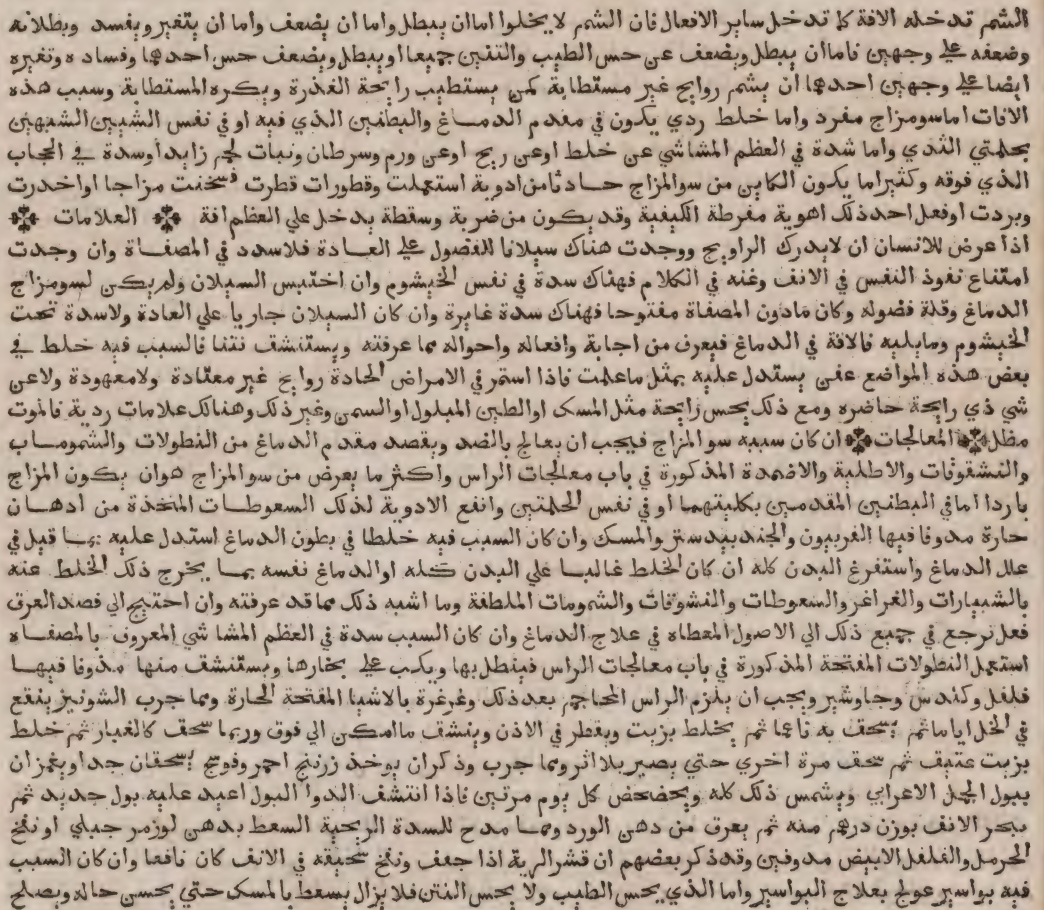 الشم تدخله الافة كما تدخل ساير الافعال فان الشم لا يخلوا اما ان يبطل واما ان يضعف واما ان يتغير ويفسد وبطلانه
وضعفه على وجهين فاما ان يبطل ويضعف عن حس الطيب والنتن جميعا او يبطل ويضعف حس احدهما وفساده وتغيره
ايضا على وجهين احدهما ان يشم روايح غير مستطابة كمن يستطيب رايحة العذرة ويكره المستطابة وسبب هذه
الافات اما سومزاج مفرد واما خلط ردي يكون في مقدم الدماغ والبطنين الذي فيه او في نفس الشيين الشبهين
بحلمتي الثدي واما شدة في العظم المشاشي عن خلط او عن ريح او عن ورم وسرطان ونبات لحم زايد او سدة في الحجاب
الذي فوقه وكثيرا ما يكون الكاين من سوالمزاج حادثا من ادوية استعملت وقطورات قطرت فسخنت مزاجا او اخدرت
وبردت او فعل احد ذلك اهوية مفرطة الكيفية وقد يكون من ضربة وسقطة يدخل علي العظم افة العلامات
اذا عرض للانسان ان لا يدرك الراويح ووجدت هناك سيلانا للفضول على العادة فلا سدد في المصفاة وان وجدت
امتناع نفوذ النفس في الانف وغنه في الكلام فهناك سدة في نفس الخيشوم وان احتبس السيلان ولم يكن لسومزاج
الدماغ وقلة فضوله وكان مادون المصفاة مفتوحا فهناك سدة غايرة وان كان السيلان جاريا علي العادة ولا سدة تحت
الخيشوم وما يليه فالافة في الدماغ فيعرف من اجابة وافعاله واحواله مما عرفته ويستنشف نتنا فالسبب فيه خلط في
بعض هذه المواضع عفن يستدل عليه بمثل ما علمت فاذا استمر في الامراض الحادة روايح غير معتادة ولا معهودة ولا عن
شي ذي رايحة حاضره ومع ذلك يحس رايحة مثل المسك او الطين المبلول او السمن وغير ذلك وهنالك علامات ردية فالموت
مظل المعالجات ان كان سببه سو المزاج فيجب ان يعالج بالضد ويقصد مقدم الدماغ من النطولات والشمومات
والنشقوقات والاطلية والاضمدة المذكورة في باب معالجات الراس واكثر ما يعرض من سو المزاج هو ان يكون المزاج
باردا اما في البطنين المقدمين بكليتهما او في نفس الحلمتين وانفع الادوية لذلك السعوطات المتخذة من ادهان
حارة مدوفا فيها الفربيون والجندبيدستر والمسك وان كان السبب فيه خلطا في بطون الدماغ استدل عليه بما قيل في
علل الدماغ واستفرغ البدن كله ان كان الخلط غالبا علي البدن كله او الدماغ نفسه بما يخرج ذلك الخلط عنه
بالشبيارات والغراغر والسعوطات والنشوقات والشمومات الملطفة وما اشبه ذلك مما قد عرفته وان احتيج الي فصد العرق
فعل نرجع في جميع ذلك الي الاصول المعطاه في علاج الدماغ وان كان السبب سدة في العظم المشاشي المعروف بالمصفاه
استعمل النطولات المفتحة المذكورة في باب معالجات الراس فينطل بها ويكب على بخارها ويستنشف منها مذوفا فيها
فلفل وكندس وجاوشير ويجب ان يلزم الراس المحاجم بعد ذلك وغرغرة بالاشيا المفتحة الحارة ومما جرب الشونيز ينقع
في الخل اياما ثم يسحف به ناعما ثم يخلط بزيت ويقطر في الاذن وينشف ما امكن الي فوق وربما سحف كالغبار ثم خلط
بزيت عتيف ثم سحف مرة اخري حتي يصير بلا اثر ومما جرب وذكر ان يوخذ زرنيخ احمر وفوتنج يسحقان جدا ويغمران
ببول الجمل الاعرابي ويشمس ذلك كله ويخضخض كل يوم مرتين فاذا انتشف الدوا البول اعيد عليه بول جديد ثم
يبخر الانف بوزن درهم منه ثم يعرق من دهن الورد ومما مدح للسدة الريحية السعط بدهن لوز مر جبلي او نفخ
الحرمل والفلفل الابيض مدوفين وقد ذكر بعضهم ان قشر الرية اذا جفف ونفخ سحيقه في الانف كان نافعا وان كان السبب
فيه بواسير عولج بعلاج البواسير واما الذي يحس الطيب ولا يحس النتن فلا يزال يسعط بالمسك حتي يحسن حاله ويصلح